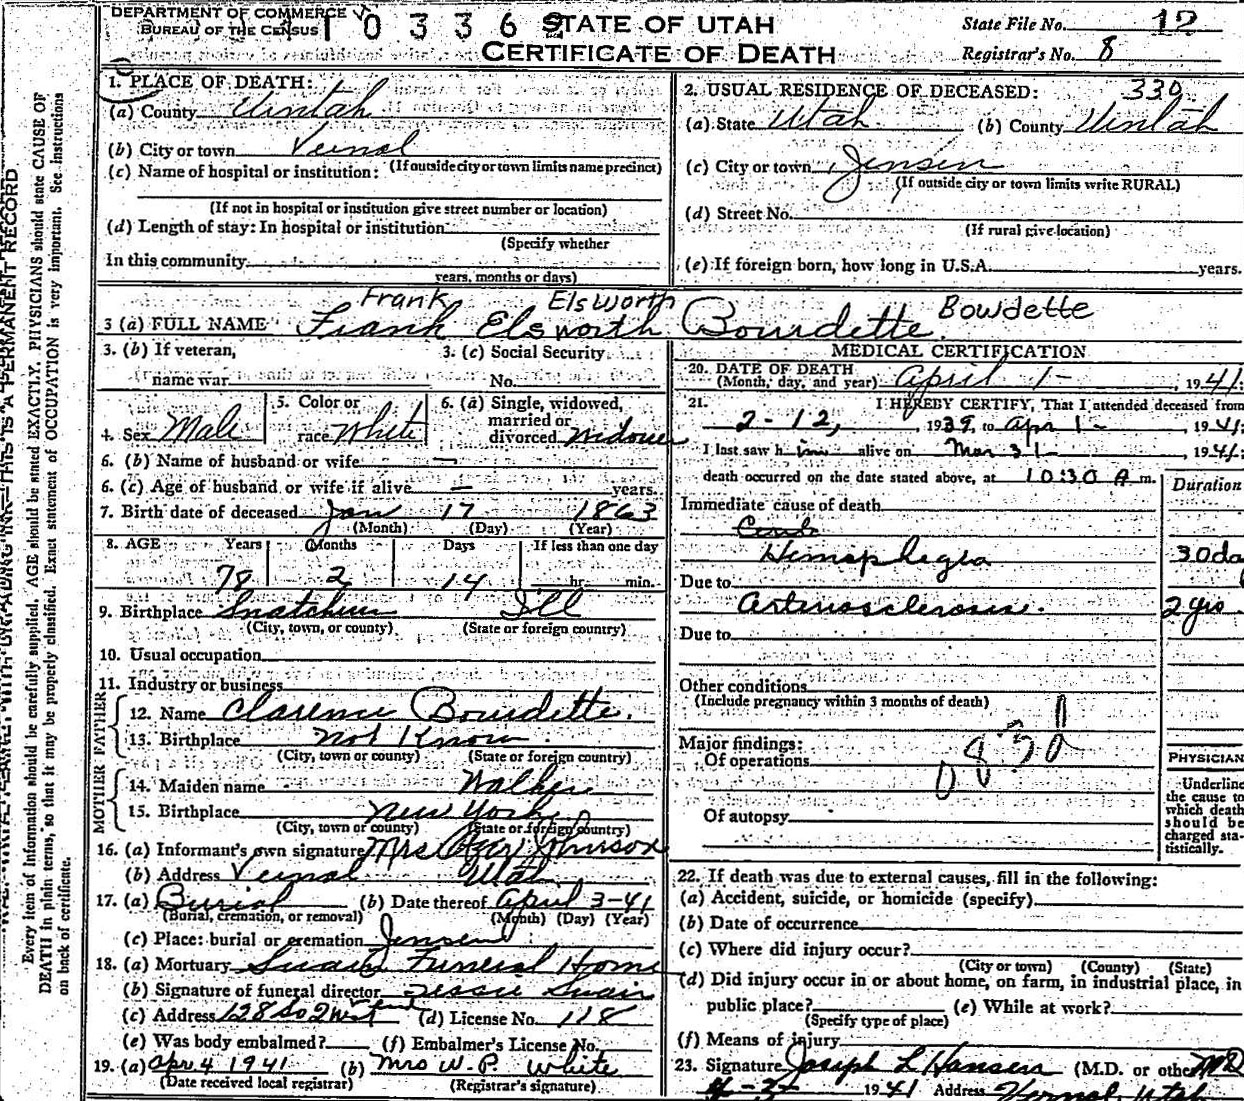 DEPARTMENT OF COMMERCE
BUREAU OF THE CENSUS
10336
STATE OF UTAH
CERTIFICATE OF DEATH
State File No. 12
Registrar's No. 8
1. PLACE OF DEATH:
(a) County Uintah
(b) City or town Vernal
(If outside city or town limits name precinct)
(c) Name of hospital or institution:
(If not in hospital or institution give street number or location)
(d) Length of stay: In hospital or institution
(Specify whether
In this community
years, months or days)
2. USUAL RESIDENCE OF DECEASED: 330
(a) State Utah (b) County Uintah
(c) City or town Jensen
(If outside city or town limits write RURAL)
(d) Street No.
(If rural give location)
(e) If foreign born, how long in U.S.A. years.
Frank Elsworth Bowdette
3 (a) FULL NAME Frank Elsworth Bourdette
3. (b) If veteran,
name war
3. (c) Social Security
No.
4. Sex Male
5. Color or
race White
6. (a) Single, widowed,
married or
divorced Widower
6. (b) Name of husband or wife —
6. (c) Age of husband or wife if alive — years.
7. Birth date of deceased Jan 17 1863
(Month) (Day) (Year)
8. AGE Years Months Days If less than one day
78 2 14 hr. min.
9. Birthplace Ill
(City, town, or county) (State or foreign country)
10. Usual occupation
11. Industry or business
FATHER
12. Name Clarence Bourdette.
13. Birthplace not Know
(City, town or county) (State or foreign country)
MOTHER
14. Maiden name Walker
15. Birthplace New York
(City, town or county) (State or foreign country)
16. (a) Informant's own signature Mrs Johnson
(b) Address Vernal Utah
17. (a) Burial (b) Date thereof April 3-41
(Burial, cremation, or removal) (Month) (Day) (Year)
(c) Place: burial or cremation Jensen
18. (a) Mortuary Swain Funeral Home
(b) Signature of funeral director Swain
(c) Address 128 So 2 West (d) License No. 118
(e) Was body embalmed? (f) Embalmer's License No.
19. (a) Apr 4 1941 (b) Mrs W. P. White
(Date received local registrar) (Registrar's signature)
MEDICAL CERTIFICATION
20. DATE OF DEATH
(Month, day, and year) April 1- , 1941
21. I HEREBY CERTIFY, That I attended deceased from
2-12, 1939, to Apr 1- , 1941
I last saw him alive on Mar 31- , 1941
death occurred on the date stated above, at 10:30 A m.
Duration
Immediate cause of death
Hemaplegia 30 da
Due to
Arteriosclerosis. 2 yrs
Due to
Other conditions
(Include pregnancy within 3 months of death)
Major findings:
Of operations
Of autopsy
PHYSICIAN
Underline
the cause to
which death
should be
charged sta-
tistically.
22. If death was due to external causes, fill in the following:
(a) Accident, suicide, or homicide (specify)
(b) Date of occurrence
(c) Where did injury occur?
(City or town) (County) (State)
(d) Did injury occur in or about home, on farm, in industrial place, in
public place? (e) While at work?
(Specify type of place)
(f) Means of injury
23. Signature Joseph L Hansen (M.D. or other) MD
4-3- 1941 Address Vernal, Utah
Every item of information should be carefully supplied. AGE should be stated EXACTLY. PHYSICIANS should state CAUSE OF
DEATH in plain terms, so that it may be properly classified. Exact statement of OCCUPATION is very important. See Instructions
on back of certificate.
THIS IS A PERMANENT RECORD